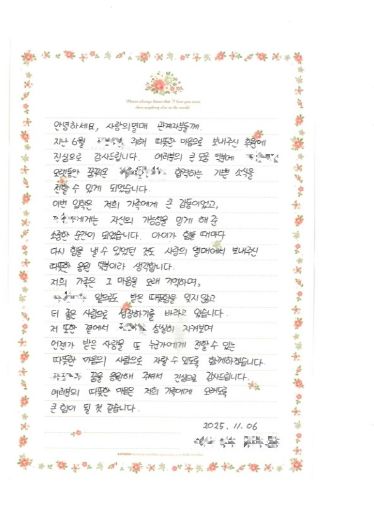 안녕하세요, 사랑의열매 관계자분들께.
지난 6월 위해 따뜻한 마음으로 보내주신 후원에
진심으로 감사드립니다. 여러분의 큰 도움 덕분에
오랫동안 꿈꿔온 합격하는 기쁜 소식을
전할 수 있게 되었습니다
이번 입학은 저희 가족에게 큰 감동이었고,
에게는 자신의 가능성을 믿게 해 준
소중한 순간이 되었습니다. 아이가 힘들 때마다
다시 힘을 낼 수 있었던 것도 사랑의 열매에서 보내주신
따뜻한 응원 덕분이라 생각합니다.
저희 가족은 그 마음을 오래 기억하며,
앞으로도 받은 따뜻함을 잊지 않고
더 좋은 사람으로 성장하기를 바라고 있습니다.
저 또한 곁에서 성실히 지켜보며
언젠가 받은 사랑을 또 누군가에게 전할 수 있는
따뜻한 마음의 사람으로 자랄 수 있도록 함께하겠습니다.
꿈을 응원해 주셔서 진심으로 감사드립니다.
여러분의 따뜻한 마음은 저희 가족에게 오래도록
큰 힘이 될 것 같습니다.
2025. 11. 06